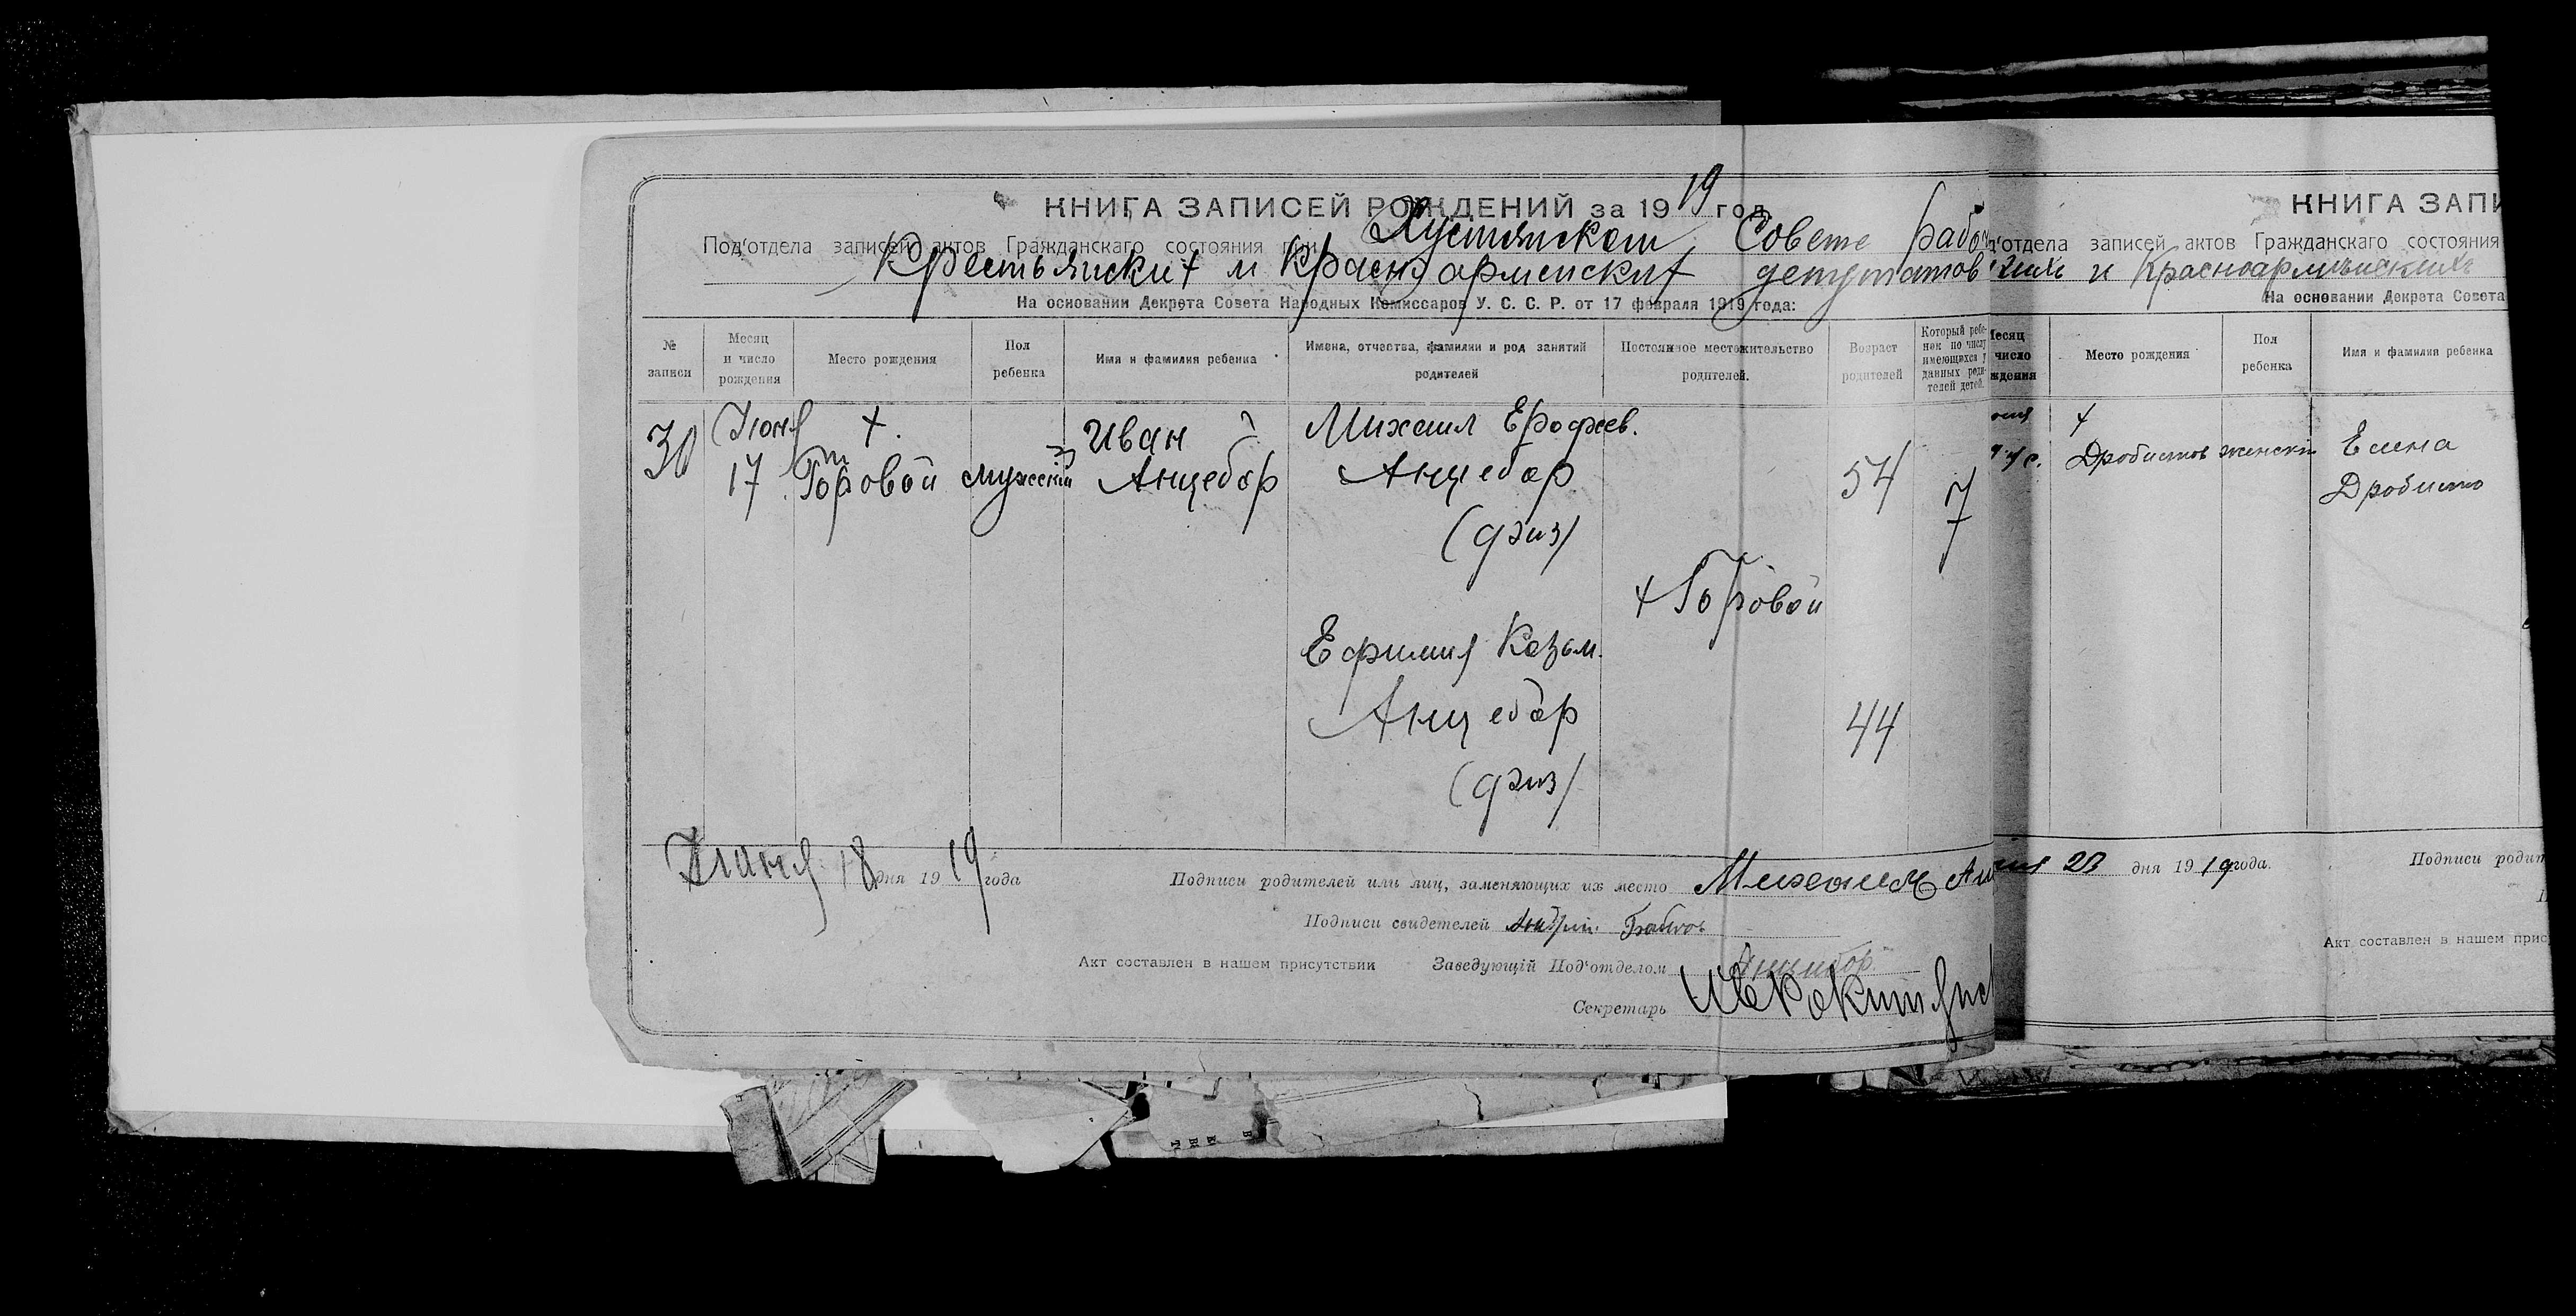 КНИГА ЗАПИСЕЙ РОЖДЕНИЙ за 1919 год
Под'отдела записей актов Гражданскаго состояния при Хустянском Совете рабоч
Крестьянских и Красноармейских депутатов
На основании Декрета Совета Народных Комиссаров У. С. С. Р. от 17 февраля 1919 года:
№ записи
Месяц и число рождения
Место рождения
Пол ребенка
Имя и фамилия ребенка
Имена, отчества, фамилии и род занятий родителей
Постоянное местожительство родителей.
Возраст родителей
Который ребенок по числу имеющихся у данных родителей детей.
30
Июня 17
х. Горовой
мужской
Иван
Анцебор
Михаил Ерофеев.
Анцебор
(физ)
54
7
х Горовой
Ефимия Козьм.
Анцебор
(физ)
44
Июня 18 дня 1919 года
Подписи родителей или лиц, заменяющих их место Михаилъ Ан
Подписи свидетелей Андрій
Акт составлен в нашем присутствии Заведующій Под'отделом Анцибор
Секретарь
КНИГА ЗАПИ
'отдела записей актов Гражданскаго состояния
ких и Красноармейских
На основании Декрета Совета
Месяц
число
ждения
Место рождения
Пол ребенка
Имя и фамилия ребенка
х
Дробитов
женскі
Елена
Дробитко
23 дня 1919 года.
Подписи родит
Акт составлен в нашем прис